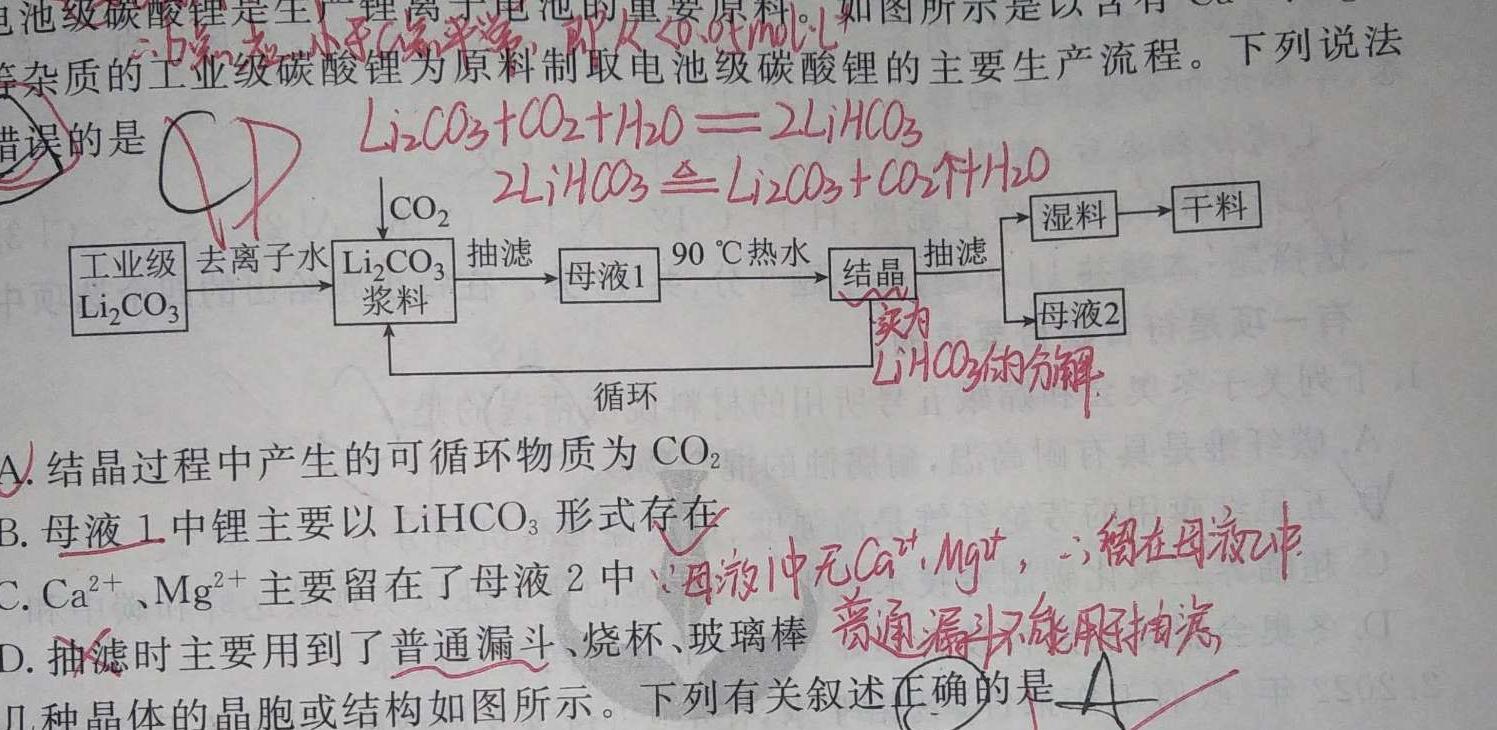 电池级碳酸锂是生产锂离子电池的重要原料。如图所示是以含有
小于 即K<0.04mol·L
等杂质的工业级碳酸锂为原料制取电池级碳酸锂的主要生产流程。下列说法
错误的是 D
Li₂CO₃+CO₂+H₂O══2LiHCO₃
2LiHCO₃ ≜ Li₂CO₃+CO₂↑+H₂O
工业级Li₂CO₃
去离子水
CO₂
Li₂CO₃浆料
抽滤
母液1
90 ℃热水
结晶
抽滤
湿料
干料
母液2
循环
实为
LiHCO₃的分解.
A. 结晶过程中产生的可循环物质为 CO₂
B. 母液 1 中锂主要以 LiHCO₃ 形式存在
C. Ca²⁺、Mg²⁺ 主要留在了母液 2 中 ∵母液1中无Ca²⁺,Mg²⁺, ∴留在母液2中.
D. 抽滤时主要用到了普通漏斗、烧杯、玻璃棒 普通漏斗不能用于抽滤,
几种晶体的晶胞或结构如图所示。下列有关叙述正确的是 A